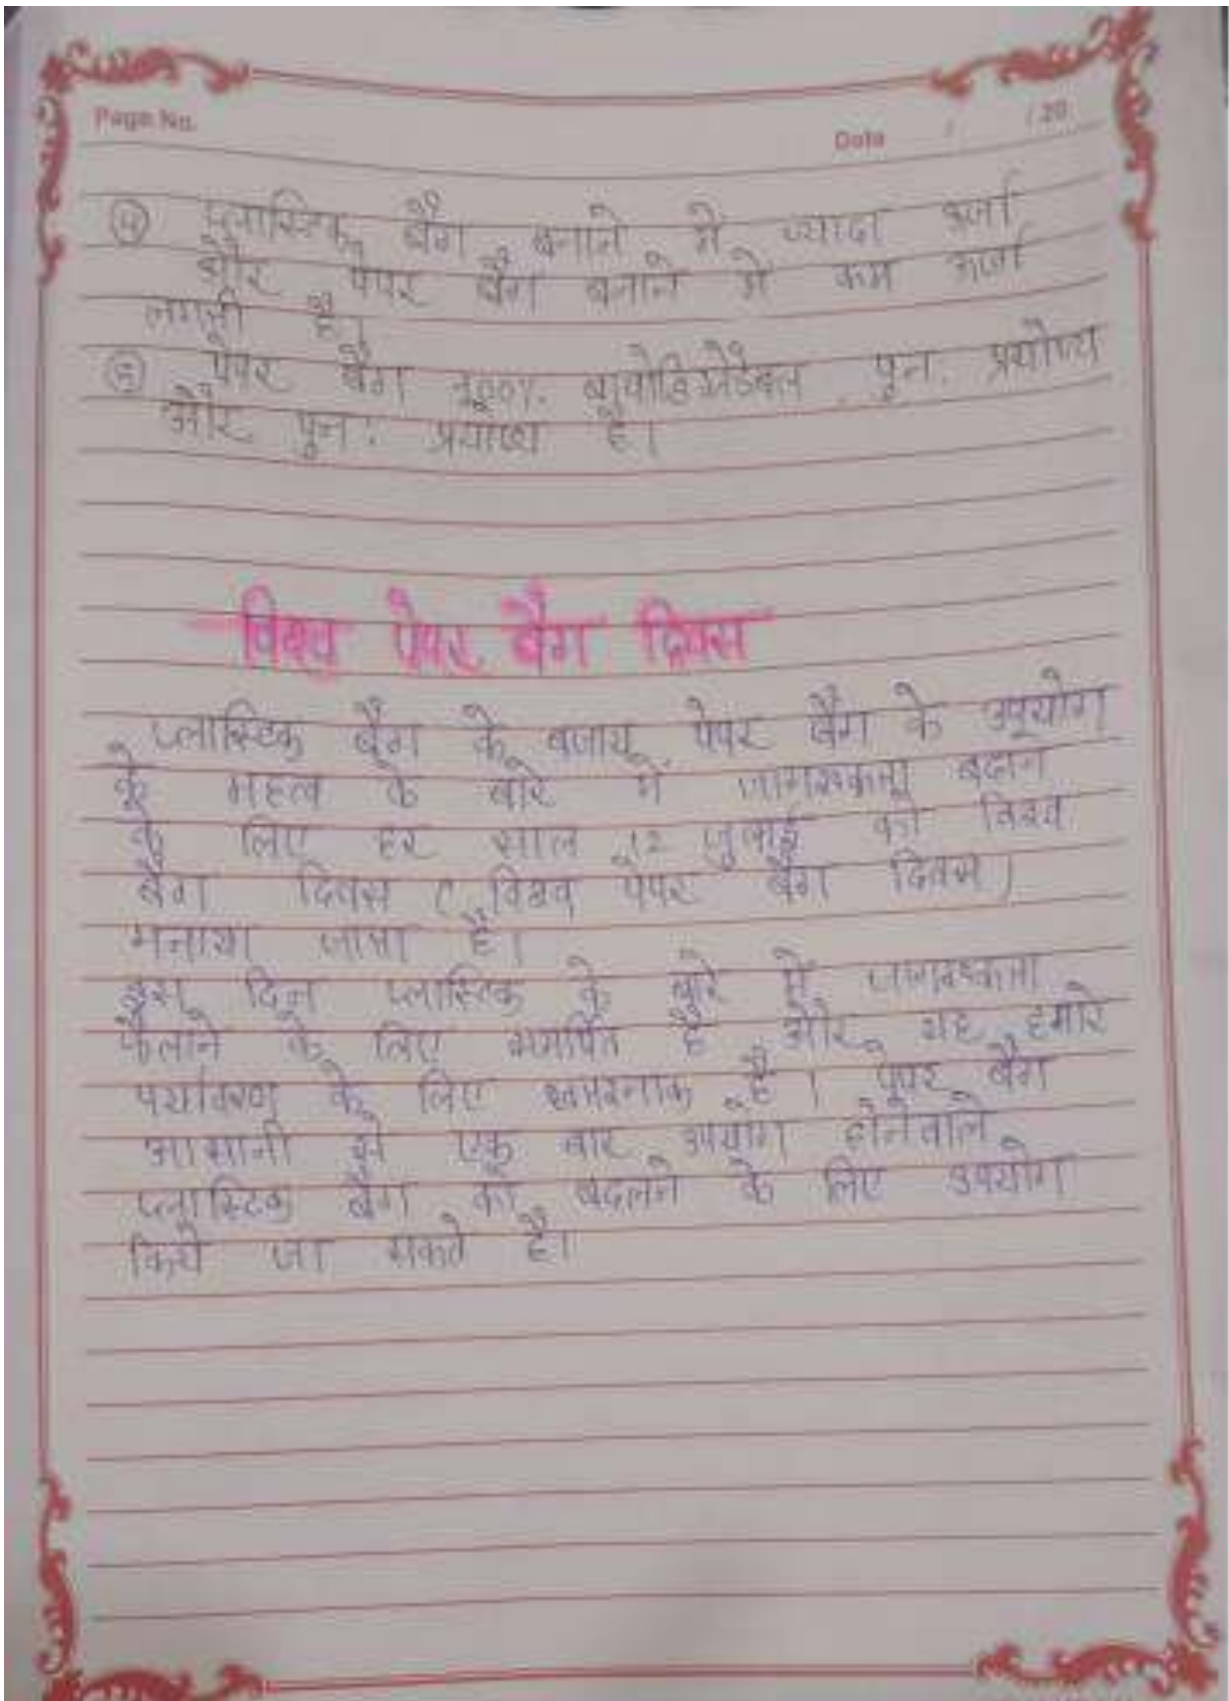 Page No.
Date / / 20
④ प्लास्टिक बैग बनाने में ज्यादा ऊर्जा
और पेपर बैग बनाने में कम ऊर्जा
लगती है।
⑤ पेपर बैग १००%. पुन. प्रयोज्य
और पुन: प्रयोज्य है।
विश्व पेपर बैग दिवस
प्लास्टिक बैग के बजाय पेपर बैग के उपयोग
के महत्व के बारे में जागरूकता बढ़ाने
के लिए हर साल 12 जुलाई को विश्व
बैग दिवस ( विश्व पेपर बैग दिवस )
मनाया जाता है।
इस दिन प्लास्टिक के बारे में जागरूकता
फैलाने के लिए समर्पित है और यह हमारे
पर्यावरण के लिए खतरनाक है। पेपर बैग
आसानी से एक बार उपयोग होनेवाले
प्लास्टिक बैग को बदलने के लिए उपयोग
किये जा सकते है।